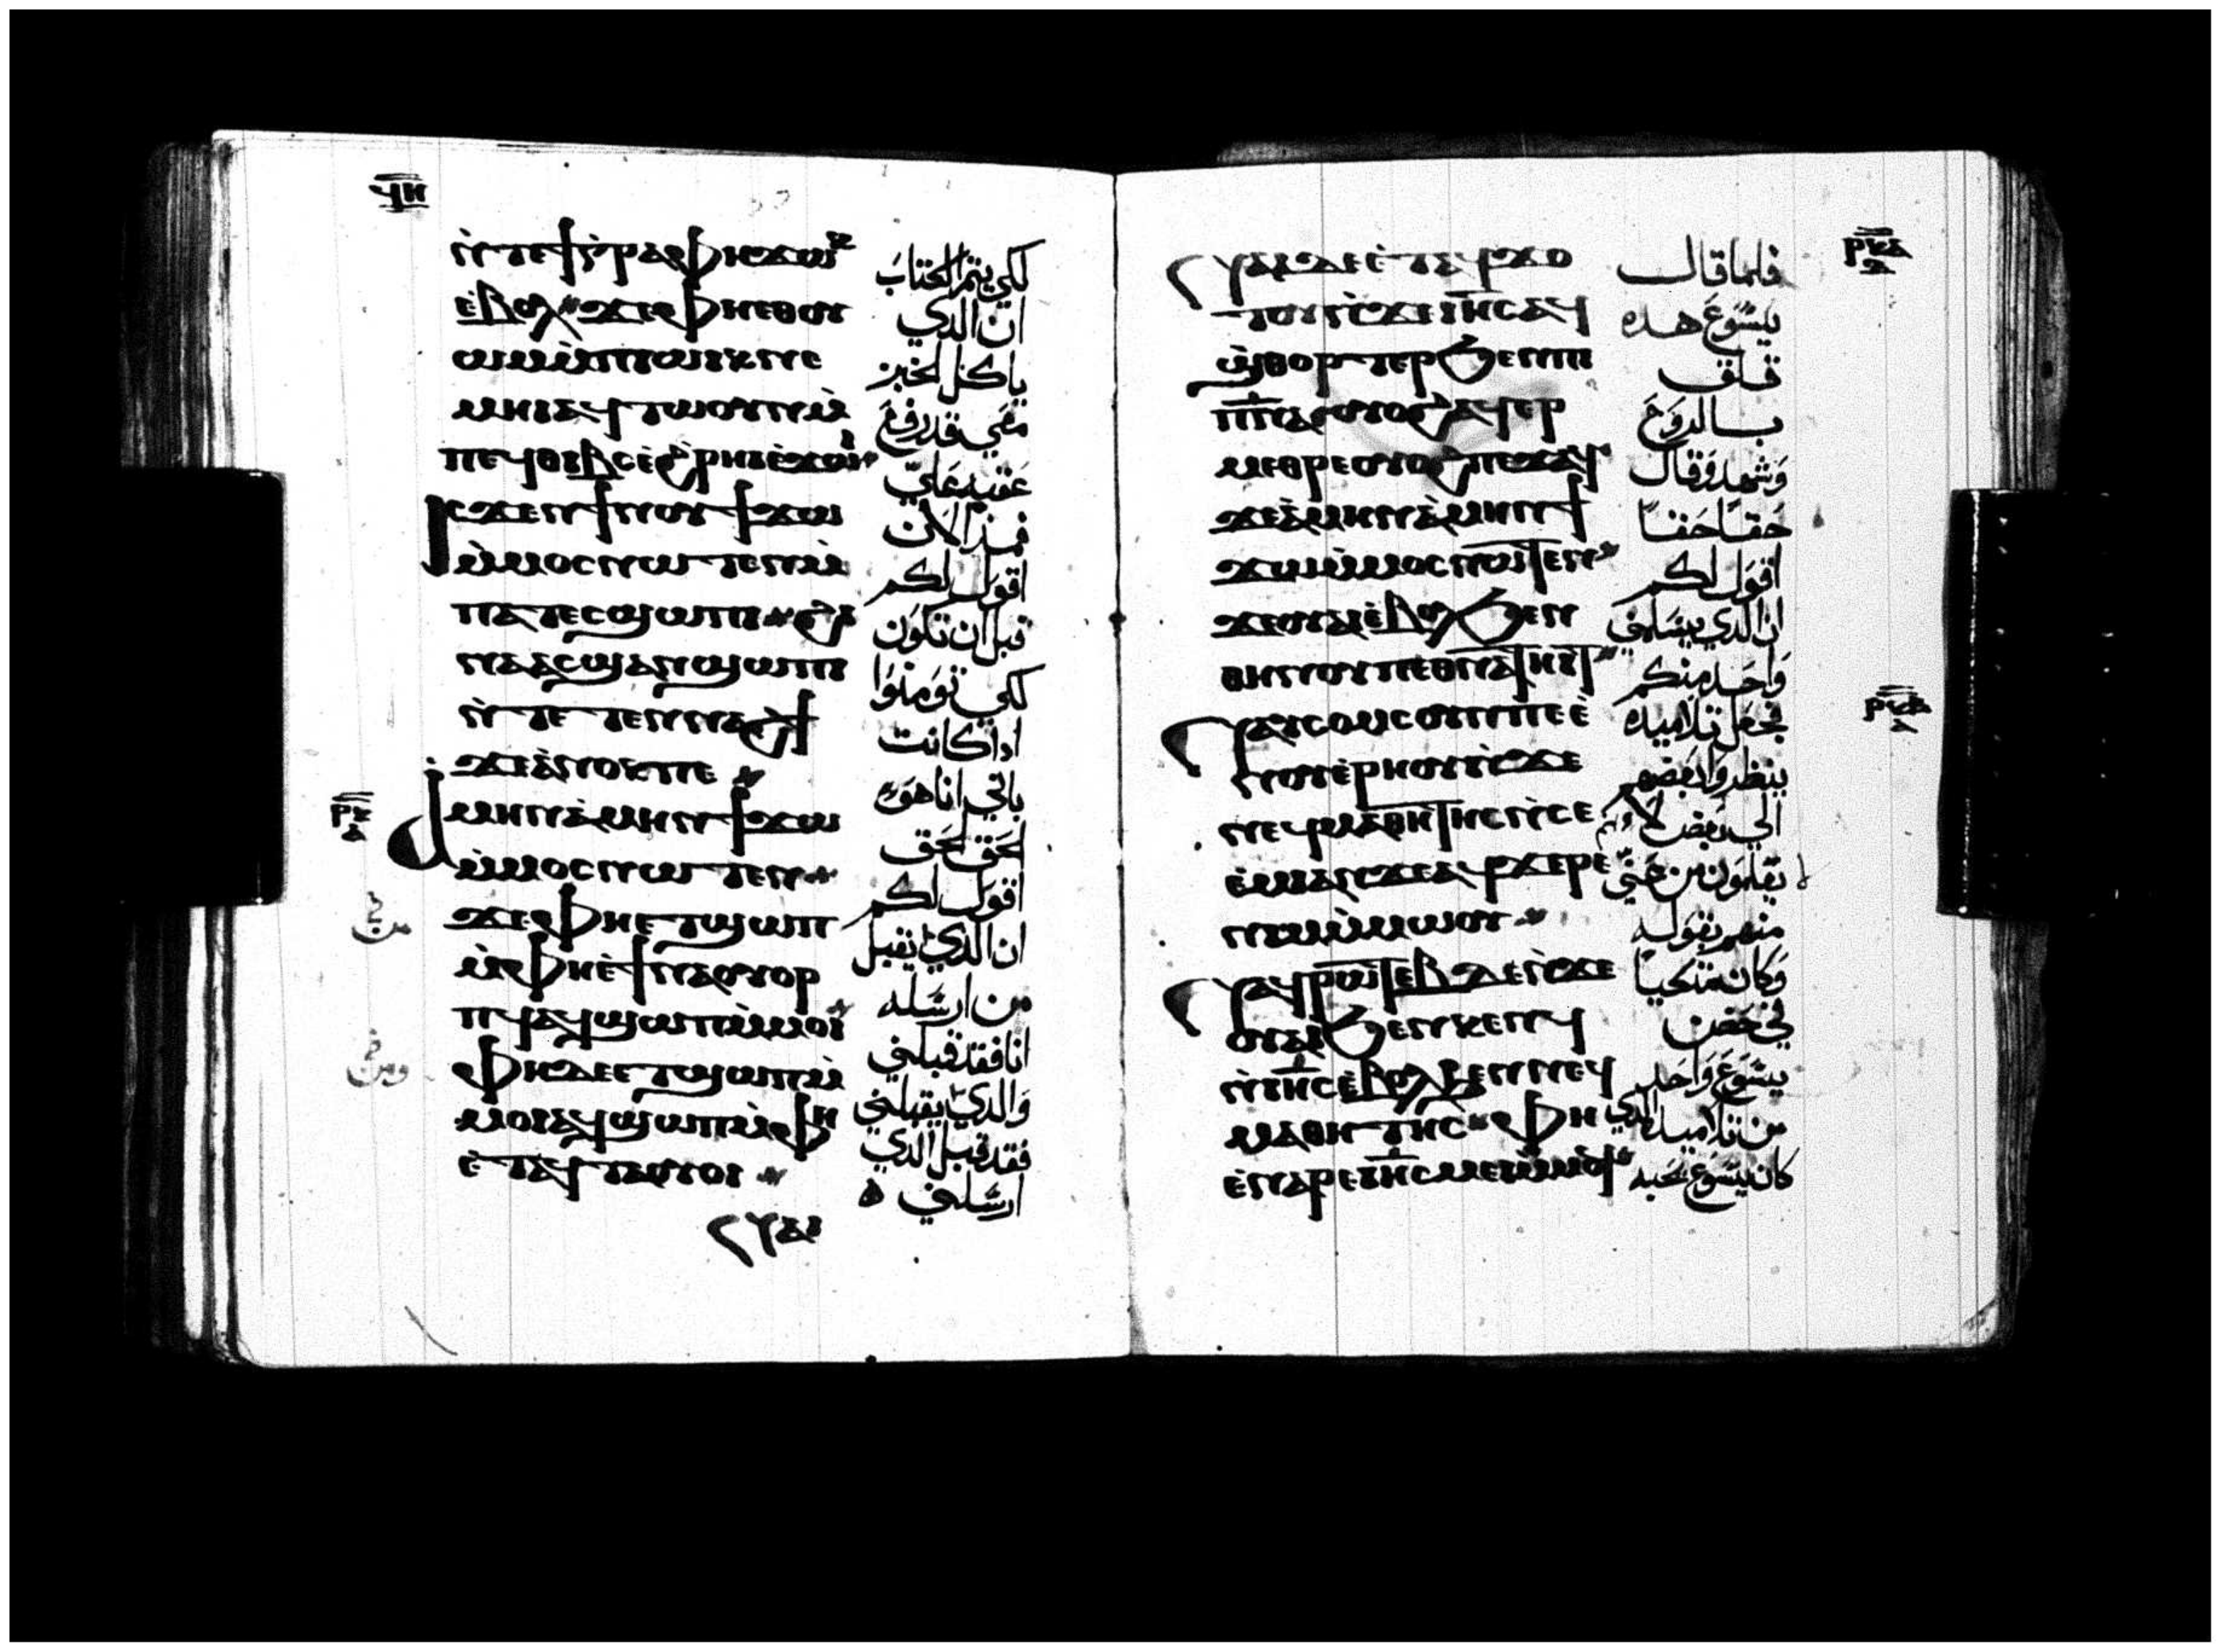 ϥⲏ
ⲛ̀ⲧⲉϯⲅ̀ⲣⲁⲫⲏϫⲱⲕ
ⲉ̀ⲃⲟⲗ ϫⲉⲫⲏⲉⲑⲟⲩ
ⲱⲙⲙ̀ⲡⲁⲱⲓⲕⲛⲉ
ⲙⲏⲓⲁϥⲧⲱⲟⲩⲛⲙ̀
ⲡⲉϥⲑⲓⲃⲥⲉ̀ϩ̀ⲣⲏⲓⲉ̀ϫⲱⲓ
ⲓⲥϫⲉⲛϯⲛⲟⲩϯϫⲱ
ⲙ̀ⲙⲟⲥⲛⲱⲧⲉⲛⲙ̀
ⲡⲁⲧⲉⲥϣⲱⲡⲓ ϩⲓ
ⲛⲁⲁⲥϣⲁⲛϣⲱⲡⲓ
ⲛ̀ⲧⲉⲧⲉⲛⲛⲁϩϯ
ϫⲉⲁ̀ⲛⲟⲕⲡⲉ
ⲣⲕ
ⲁ̀ⲙⲏⲛⲁ̀ⲙⲏⲛϯϫⲱ
ⲙ̀ⲙⲟⲥⲛⲱⲧⲉⲛ
ϫⲉⲫⲏⲉⲧϣⲱⲡ
ⲙ̀ⲫⲏⲉ̀ϯⲛⲁⲟⲩⲟⲣ
ⲡϥⲁϥϣⲱⲡⲙ̀ⲙⲟⲓ
ⲫⲏⲇⲉⲉⲧϣⲱⲡⲙ̀
ⲙⲟⲓⲁϥϣⲱⲡⲙ̀ⲫⲏ
ⲉ̀ⲧⲁϥⲧⲁⲟⲩⲟⲓ
ⲛⲁⲓ
لكي يتم الكتاب
ان الذي
ياكل الخبز
معي قد رفع
عقبه علي
فمند الان
اقول لكم
قبل ان تكون
لكي تومنوا
ادا كانت
باني انا هو
الحق الحق
اقول لكم
ان الذي يقبل
من ارسله
انا فقد قبلني
والدي يقبلني
فقد قبل الذي
ارسلني ه
من
ومن
ⲣⲕⲁ
ⲛⲁⲓⲇⲉⲉ̀ⲧⲁϥϫⲟ
ⲧⲟⲩⲛ̀ϫⲉⲓⲏⲥⲁϥ
ϣ̀ⲑⲟⲣⲧⲉⲣϧⲉⲛⲡⲓ
ⲡⲛⲁⲟⲩⲟϩⲁϥⲉⲣ
ⲙⲉⲑⲣⲉⲟⲩⲟϩⲡⲉϫⲁϥ
ϫⲉⲁ̀ⲙⲏⲛⲁ̀ⲙⲏⲛϯ
ϫⲱⲙ̀ⲙⲟⲥⲛⲱⲧⲉⲛ
ϫⲉⲟⲩⲁⲓⲉ̀ⲃⲟⲗϧⲉⲛ
ⲑⲏⲛⲟⲩⲡⲉⲑⲛⲁⲧⲏⲓⲧ
ⲣⲕⲃ
ⲛⲁⲩⲥⲟⲙⲥⲟⲩⲛⲡⲉⲉ̀
ⲛⲟⲩⲉ̀ⲣⲏⲟⲩⲛ̀ϫⲉ
ⲛⲉϥⲙⲁⲑⲏⲧⲏⲥⲛ̀ⲥⲉ
ⲉ̀ⲙⲓⲁⲛϫⲉⲁϥϫⲉⲣⲉ
ⲛⲓⲙⲙ̀ⲙⲱⲟⲩ
ⲛⲁϥⲣⲱⲧⲉⲃⲇⲉⲛ̀ϫⲉ
ⲟⲩⲁⲓϧⲉⲛⲕⲉⲛϥ
ⲛ̀ⲓⲏⲥⲉ̀ⲃⲟⲗϧⲉⲛⲛⲉϥ
ⲙⲁⲑⲏⲧⲏⲥ ⲫⲏ
ⲉ̀ⲛⲁⲣⲉⲓⲏⲥⲙⲉⲓⲙ̀ⲙⲟϥ
فلما قال
يسوع هده
قلق
بالروح
وشهد وقال
حقا حقا
اقول لكم
ان الذي يسلمني
واحد منكم
فجعل تلاميده
ينظروا بعضهم
الي بعض لا
يعلمون من عني
منهم بقوله
وكان متكيا
في حضن
يسوع واحد
من تلاميده الذي
كان يسوع يحبه